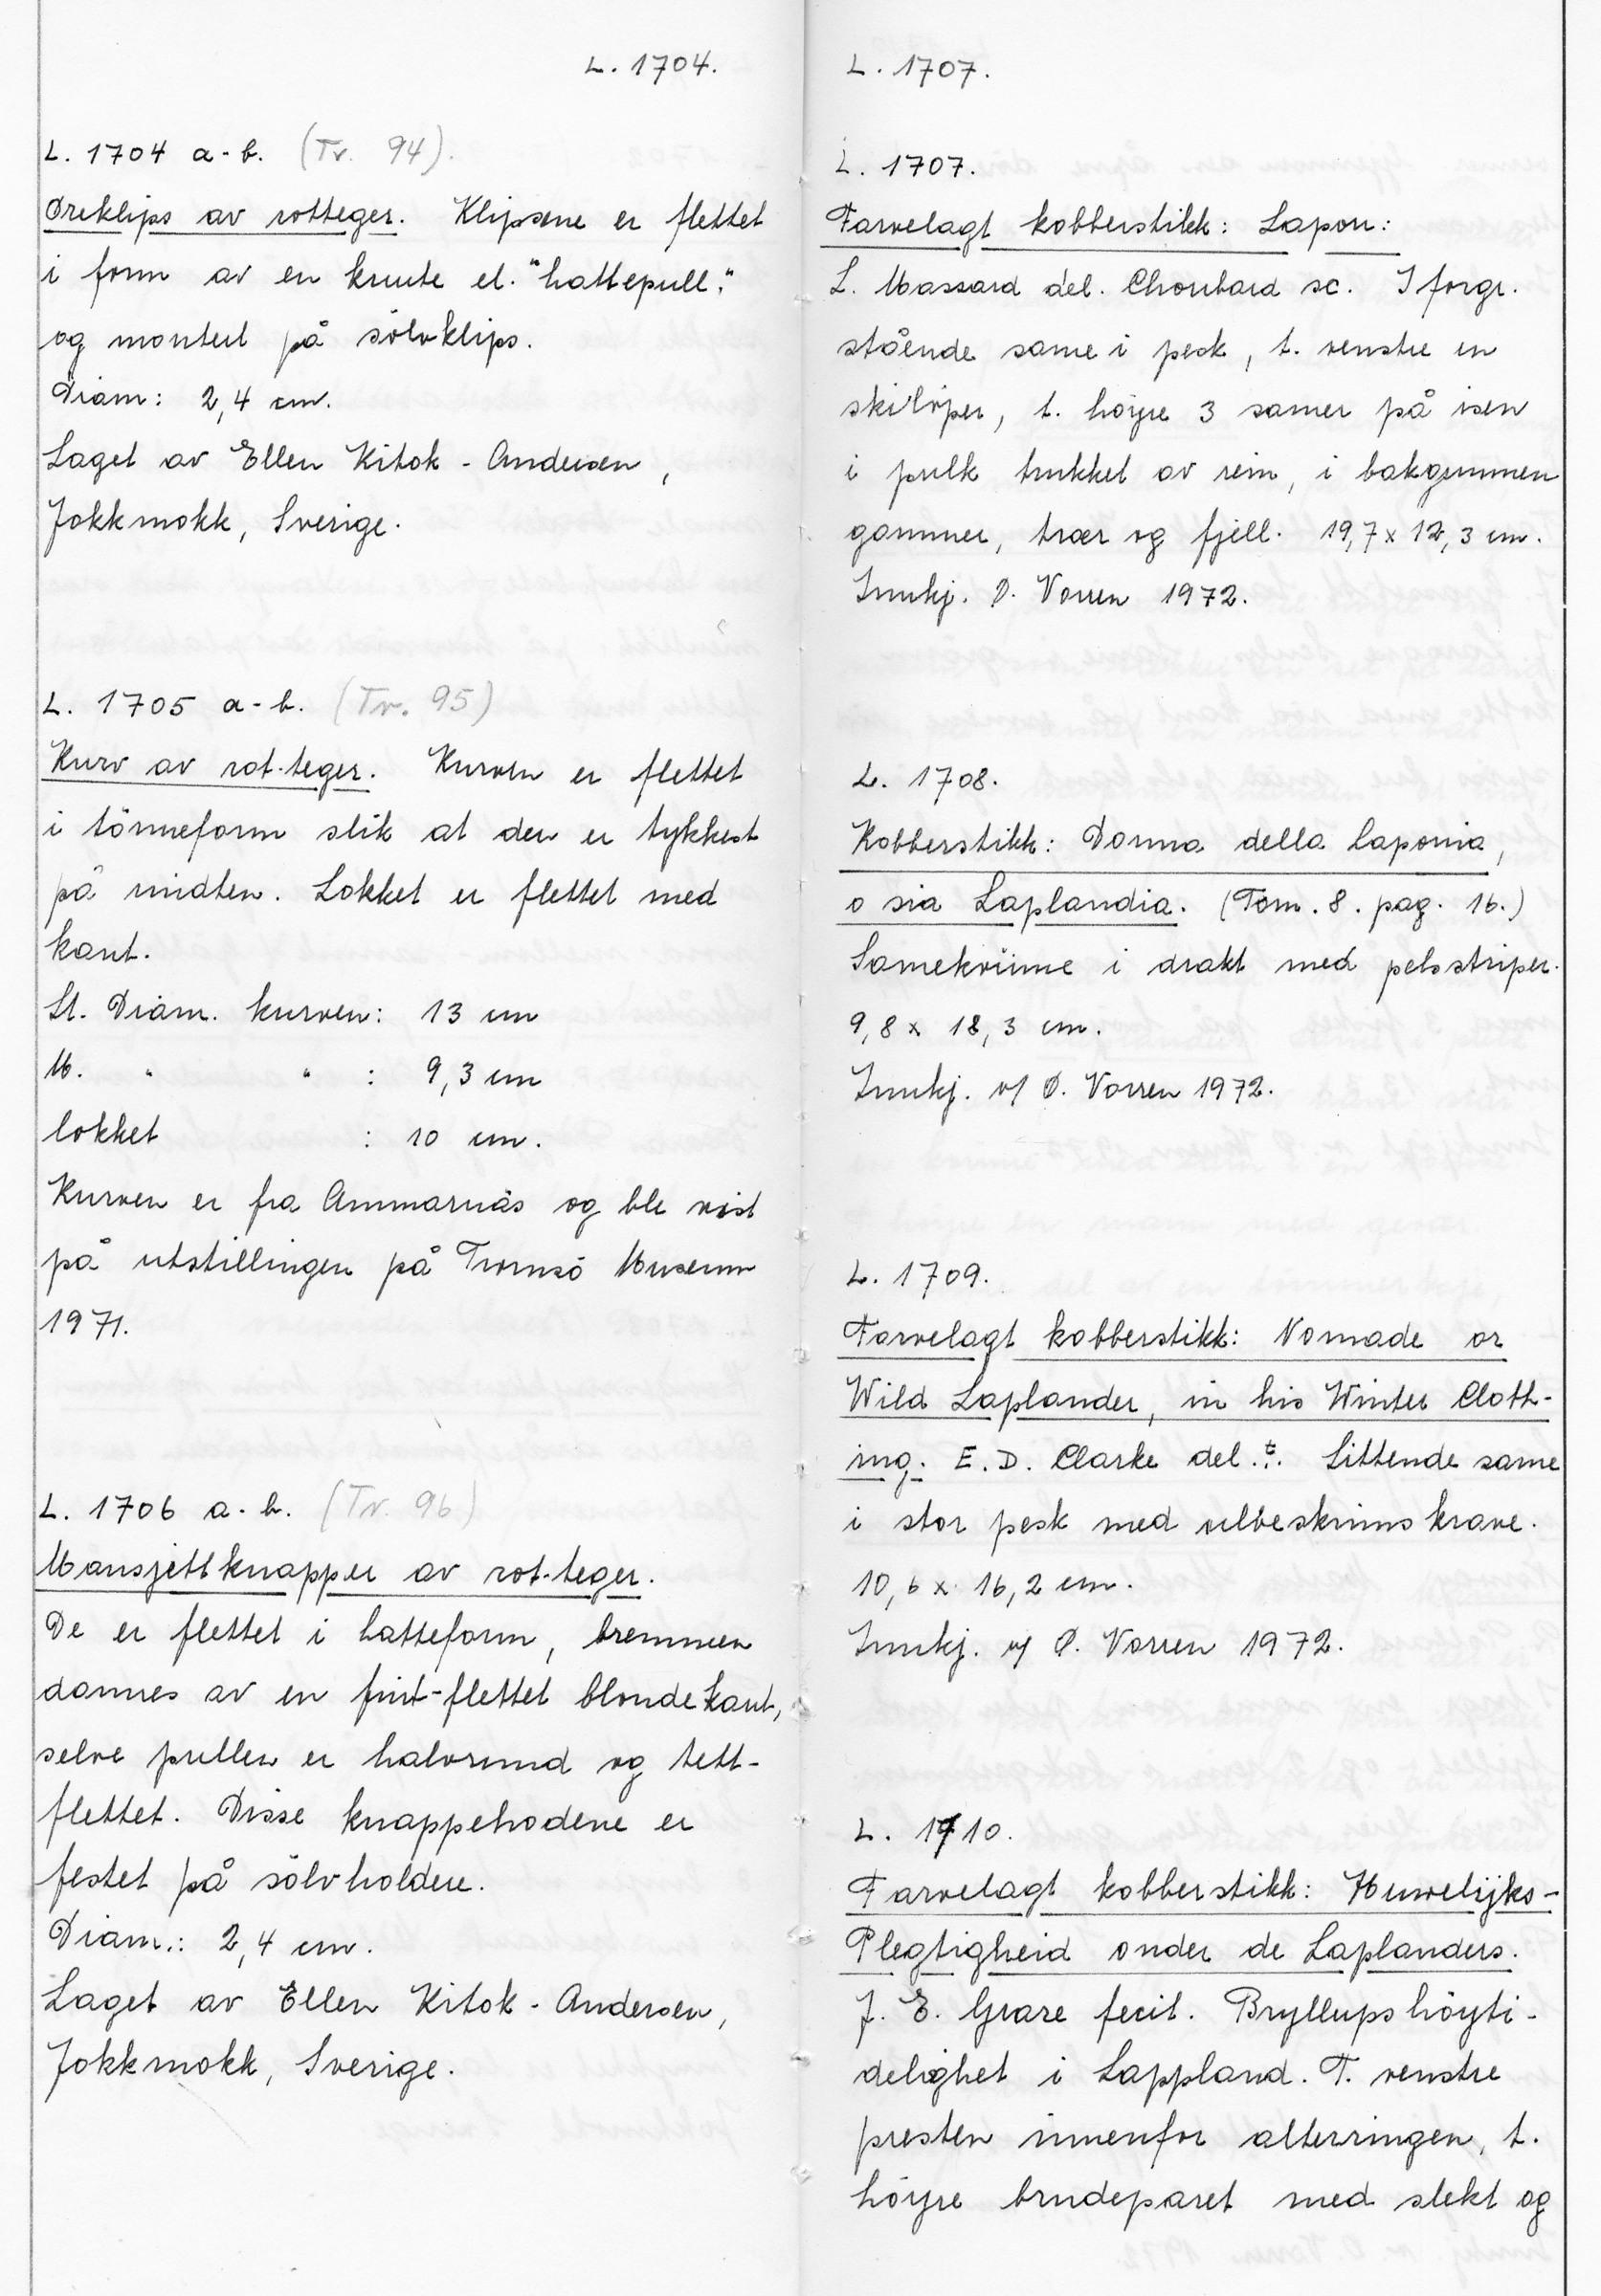 L. 1704.
L. 1704 a-b. (Tr. 94).
Øreklips av rotteger. Klipsene er flettet
i form av en knute el. "hattepull",
og montert på sölvklips.
Diam: 2,4 cm.
Laget av Ellen Kitok - Andersen,
Jokkmokk, Sverige.
L. 1705 a-b. (Tr. 95)
Kurv av rot-teger. Kurven er flettet
i tönneform slik at den er tykkest
på midten. Lokket er flettet med
kant.
St. Diam. kurven: 13 cm
M. " " : 9,3 cm
lokket : 10 cm.
Kurven er fra Ammarnäs og ble vist
på utstillingen på Tromsö Museum
1971.
L. 1706 a-b. (Tr. 96)
Mansjettknapper av rot-teger.
De er flettet i hatteform, bremmen
dannes av en fint-flettet blondekant,
selve pullen er halvrund og tett-
flettet. Disse knappehodene er
festet på sölvholdere.
Diam.: 2,4 cm.
Laget av Ellen Kitok - Andersen,
Jokkmokk, Sverige.
L. 1707.
L. 1707.
Farvelagt kobberstikk: Lapon:
L. Massard del. Choubard sc. I forgr.
stående same i pesk, t. venstre en
skilöper, t. höyre 3 samer på isen
i pulk trukket av rein, i bakgrunnen
gammer, trær og fjell. 19,7 x 12,3 cm.
Innkj. Ø. Vorren 1972.
L. 1708.
Kobberstikk: Donna della Laponia,
o sia Laplandia. (Tom. 8. pag. 16.)
Samekvinne i drakt med pelsstriper.
9,8 x 18,3 cm.
Innkj. v/ Ø. Vorren 1972.
L. 1709.
Farvelagt kobberstikk: Nomade or
Wild Laplander, in his Winter Cloth-
ing. E. D. Clarke del.t. Sittende same
i stor pesk med ulveskinns krave.
10,6 x 16,2 cm.
Innkj. v/ Ø. Vorren 1972.
L. 1710.
Farvelagt kobberstikk: Huwelijks-
Plegtigheid onder de Laplanders.
J. E. Grare fecit. Bryllupshöyti-
delighet i Lappland. T. venstre
presten innenfor alterringen, t.
höyre brudeparet med slekt og